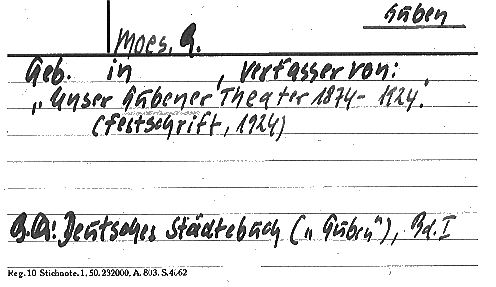 Guben
Moes, G.
Geb. in , Verfasser von:
„Unser Gubener Theater 1874-1924."
(Festschrift, 1924)
Deutsches Städtebuch („Guben"), Bd. I
Reg. 10 Stichnote. 1, 50. 232000, A. 803. S. 4662